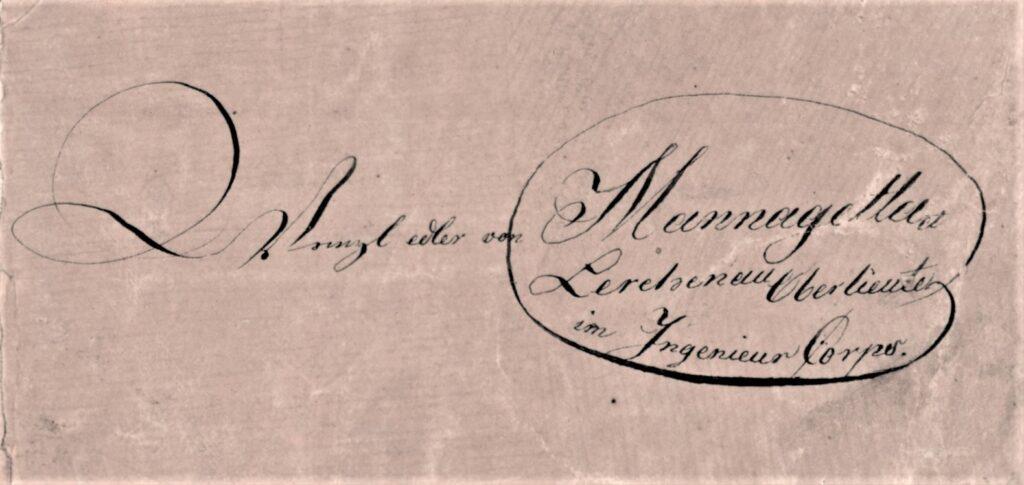 Wenzl edler von Mannagetta et
Lerchenau
im Ingenieur Corps.